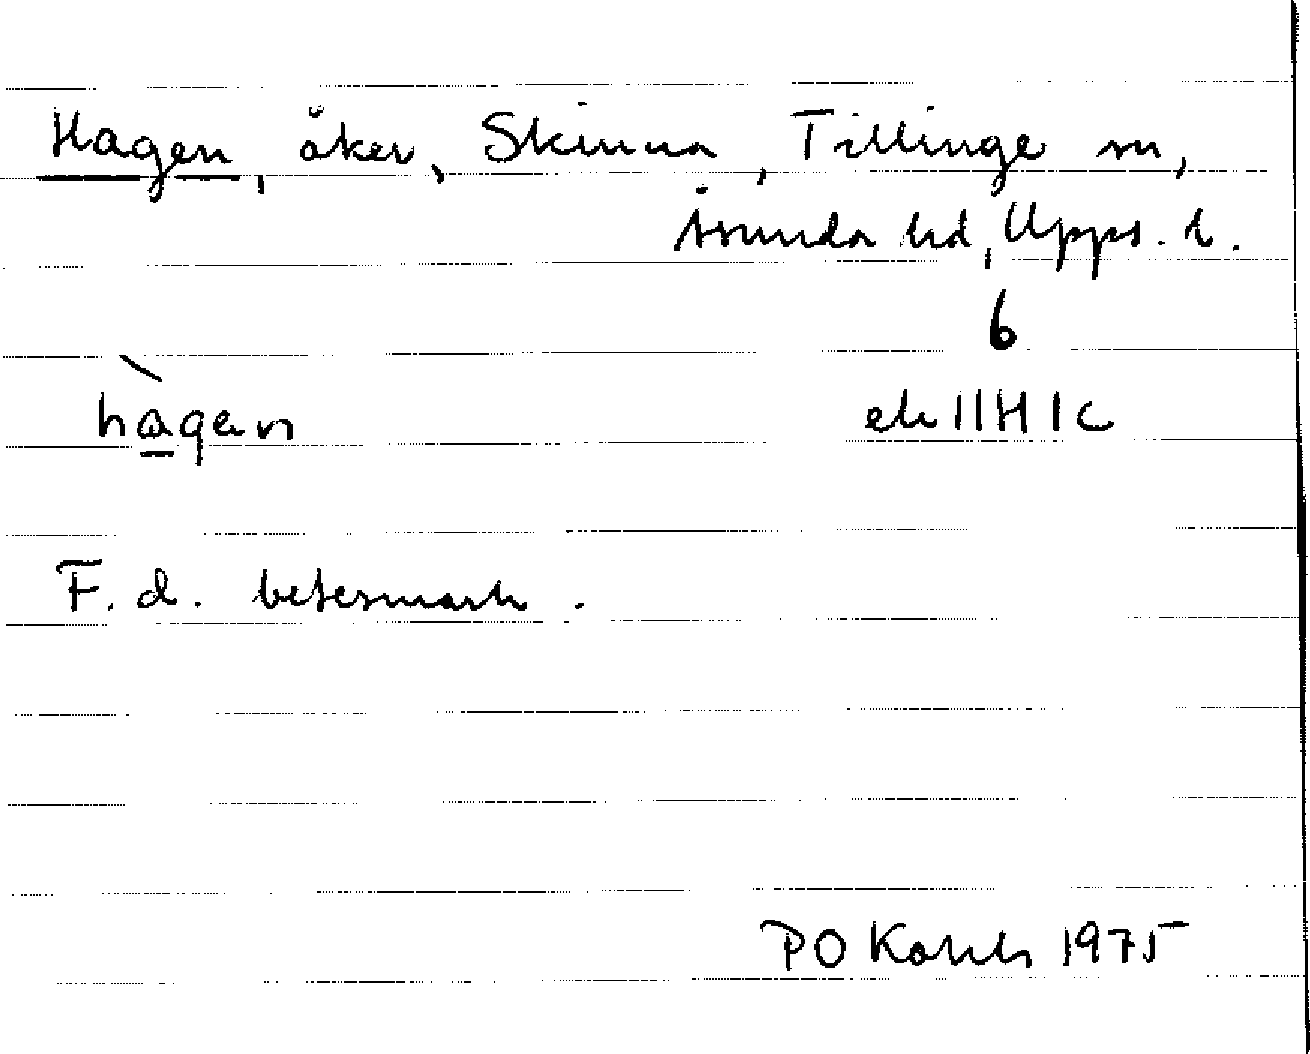 Hagen, åker, Skinna, Tillinge sn,
Åsunda hd, Upps. l.
6
hàgen ek 11H 1c
F. d. betesmark.
PO 1975